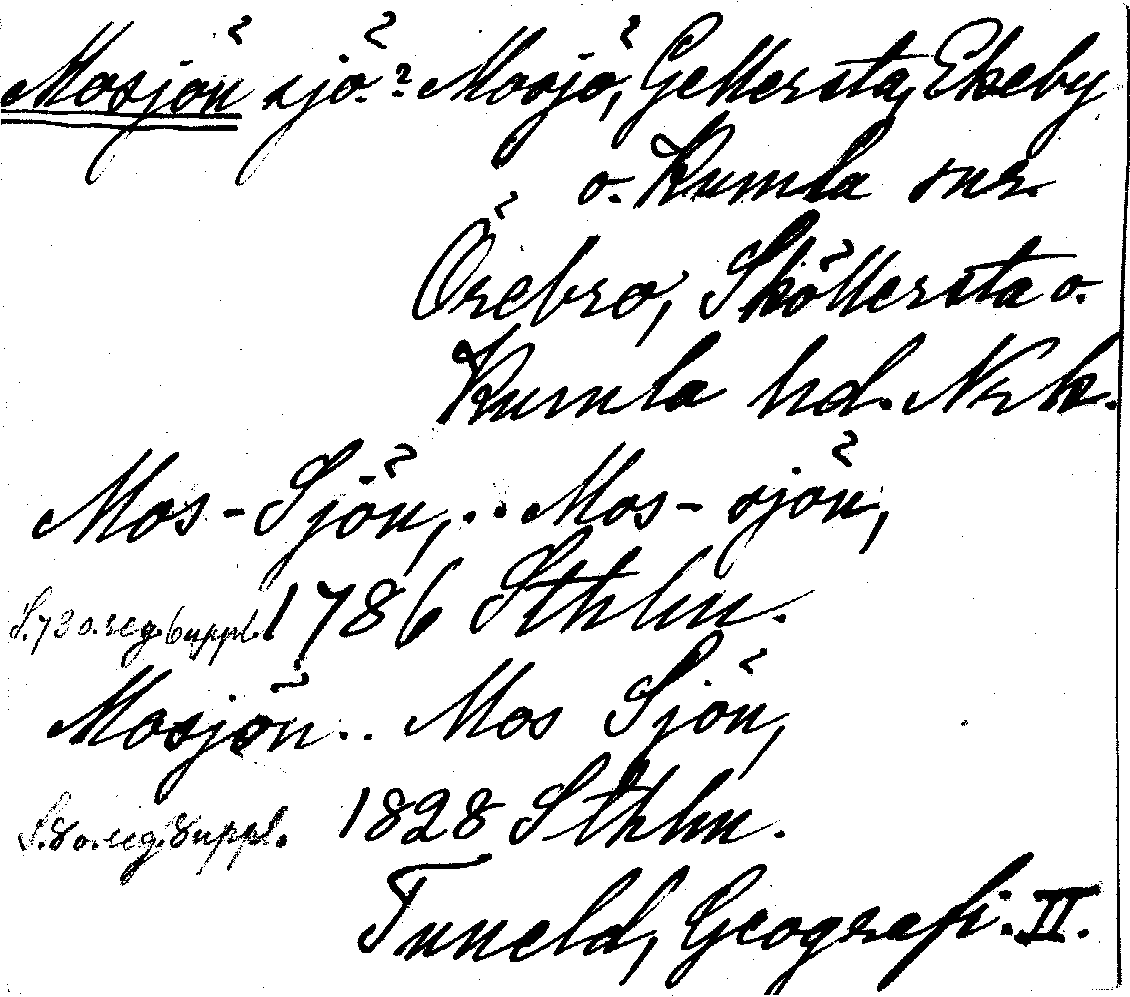 Mosjön sjö? Mosjö, Gellersta, Ekeby
o. Kumla snr
Örebro, Sköllersta o.
Kumla hd. Nrk.
Mos-Sjön,.. Mos-sjön,
S.73 o. reg. 6 uppl. 1786 Sthlm.
Mosjön .. Mos Sjön,
S.80. reg. 8 uppl. 1828 Sthlm.
Tuneld, Geografi. II.